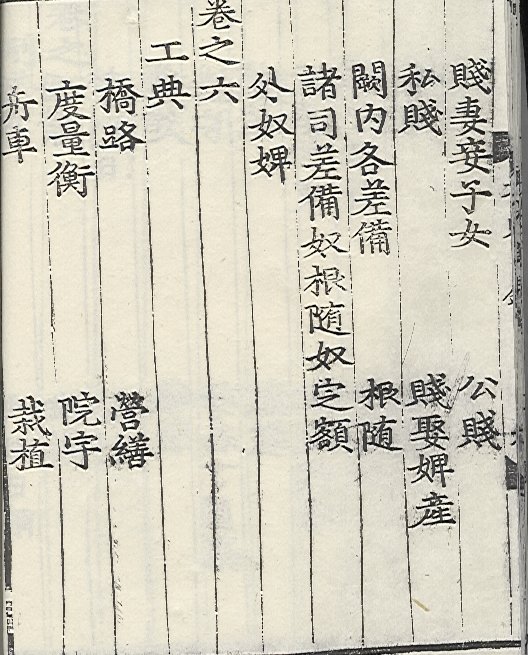 賤妻妾子女 公賤
私賤 賤娶婢產
闕內各差備 根隨
諸司差備奴根隨奴定額
外奴婢
卷之六
工典
橋路 營繕
度量衡 院宇
舟車 栽植